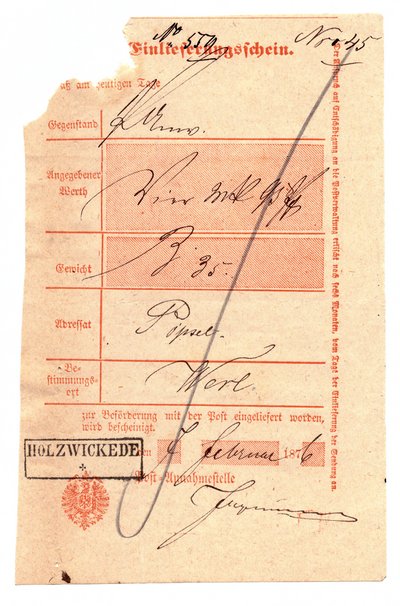 No 559.
No 45
Einlieferungsschein.
Daß am heutigen Tage
Gegenstand
Angegebener
Werth
Vier Mk
Gewicht
35.
Adressat
Pöpsel.
Be-
stimmungs-
ort
Werl.
zur Beförderung mit der Post eingeliefert worden,
wird bescheinigt.
HOLZWICKEDE
den 7 Februar 1876
Post-Annahmestelle
Der Anspruch auf Entschädigung an die Postverwaltung erlischt nach sechs Monaten, vom Tage der Einlieferung der Sendung an.